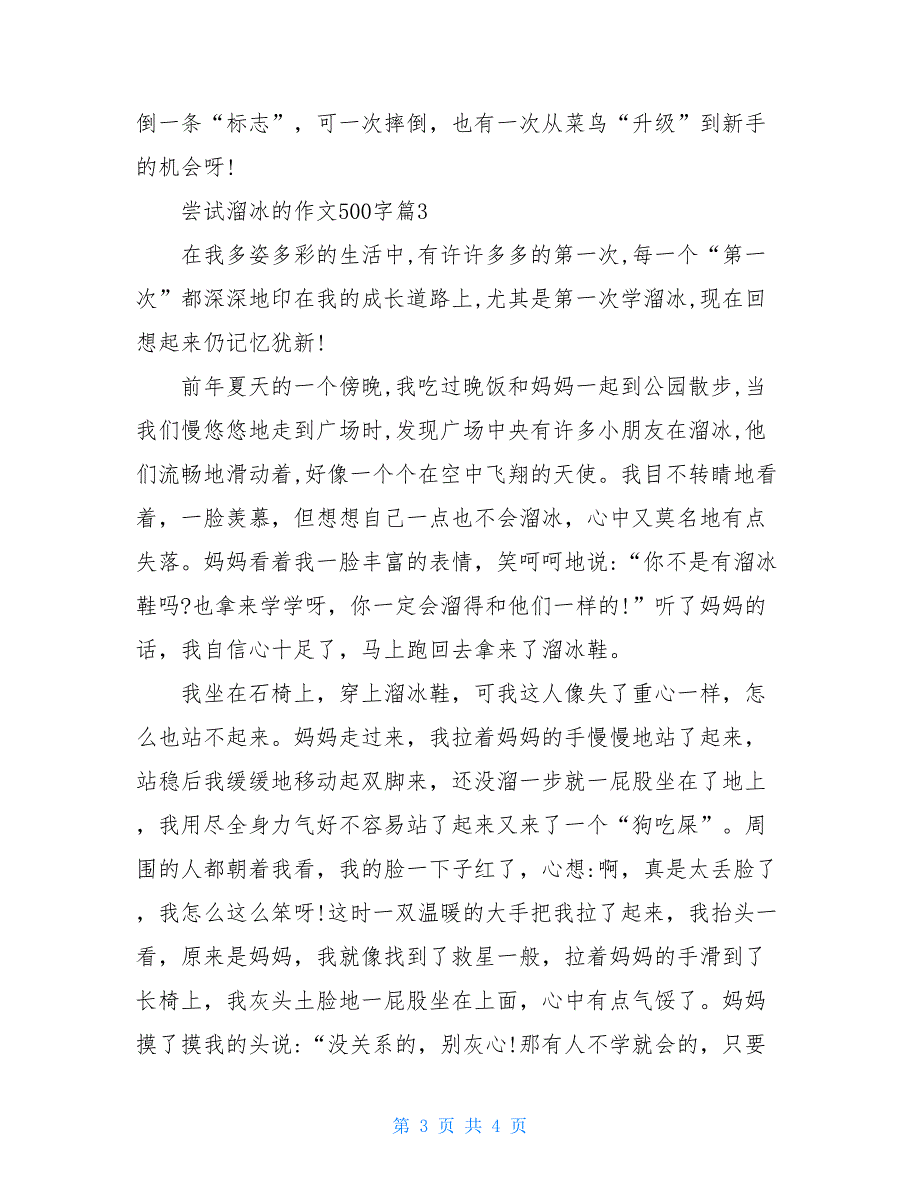 倒一条“标志”，可一次摔倒，也有一次从菜鸟“升级”到新手
的机会呀!
尝试溜冰的作文500字篇3
在我多姿多彩的生活中,有许许多多的第一次,每一个“第一
次”都深深地印在我的成长道路上,尤其是第一次学溜冰,现在回
想起来仍记忆犹新!
前年夏天的一个傍晚,我吃过晚饭和妈妈一起到公园散步,当
我们慢悠悠地走到广场时,发现广场中央有许多小朋友在溜冰,他
们流畅地滑动着,好像一个个在空中飞翔的天使。我目不转睛地看
着，一脸羡慕，但想想自己一点也不会溜冰，心中又莫名地有点
失落。妈妈看着我一脸丰富的表情，笑呵呵地说:“你不是有溜冰
鞋吗?也拿来学学呀，你一定会溜得和他们一样的!”听了妈妈的
话，我自信心十足了，马上跑回去拿来了溜冰鞋。
我坐在石椅上，穿上溜冰鞋，可我这人像失了重心一样，怎
么也站不起来。妈妈走过来，我拉着妈妈的手慢慢地站了起来，
站稳后我缓缓地移动起双脚来，还没溜一步就一屁股坐在了地上
，我用尽全身力气好不容易站了起来又来了一个“狗吃屎”。周
围的人都朝着我看，我的脸一下子红了，心想:啊，真是太丢脸了
，我怎么这么笨呀!这时一双温暖的大手把我拉了起来，我抬头一
看，原来是妈妈，我就像找到了救星一般，拉着妈妈的手滑到了
长椅上，我灰头土脸地一屁股坐在上面，心中有点气馁了。妈妈
摸了摸我的头说:“没关系的，别灰心!那有人不学就会的，只要
第 3 页 共 4 页